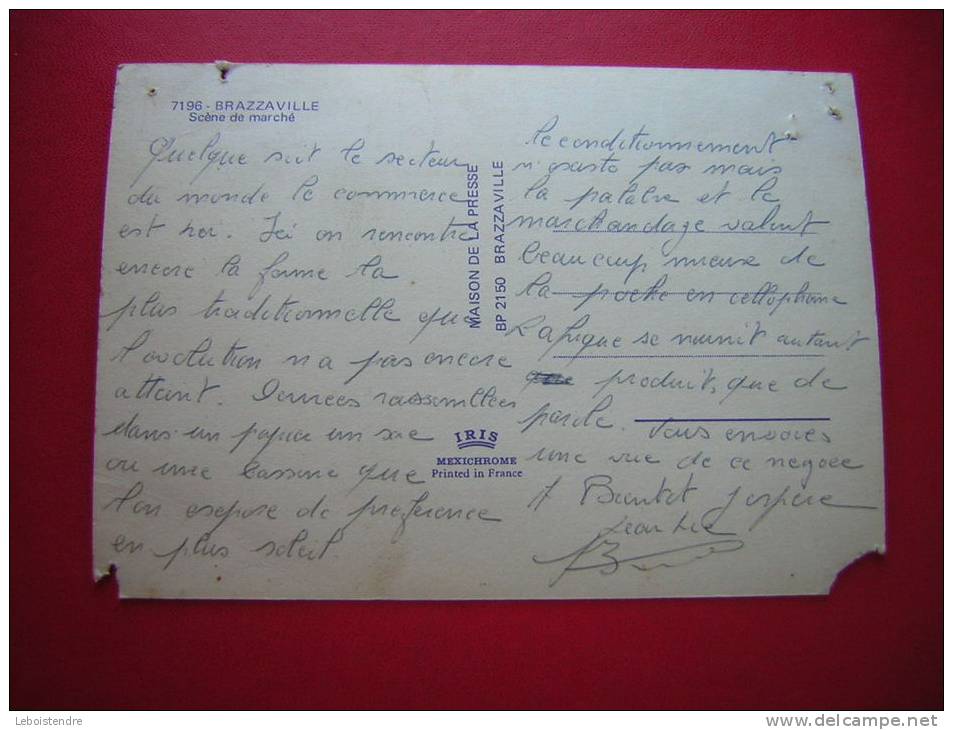 7196 - BRAZZAVILLE
Scène de marché
Quelque soit le secteur
du monde le commerce
est roi. Ici on rencontre
encore la forme la
plus traditionnelle que
l'evolution n'a pas encore
attaint. Denrees rassemblées
dans un papier un sac
ou une bassine que
l'on expose de preference
en plus soleil.
MAISON DE LA PRESSE
BP 2150 BRAZZAVILLE
IRIS
MEXICHROME
Printed in France
le conditionnement
n'existe pas mais
la palabre et le
marchandage valent
beaucoup mieux de
la poche en cellophane
L'afrique se nourrit autant
produit, que de
parole. Vous envoies
une vue de ce negoce
A Bientot j'espère
Leboistendre
www.delcampe.net